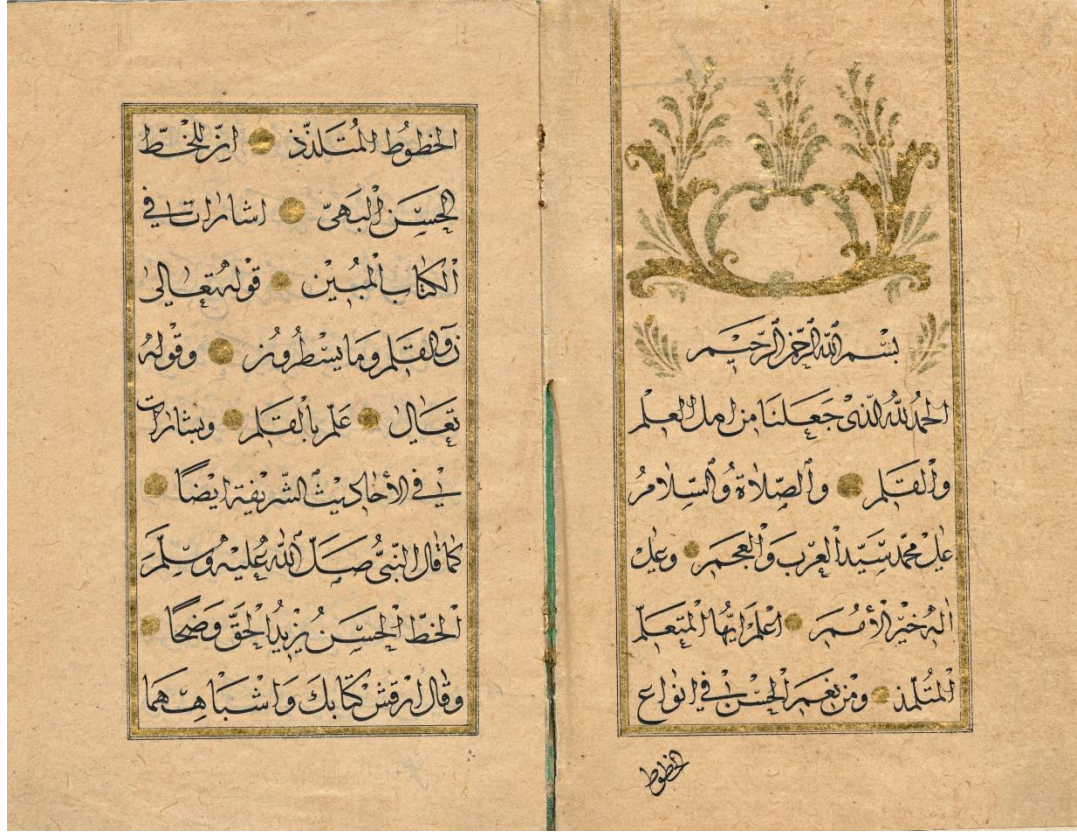 بِسْمِ اللّٰهِ الرَّحْمٰنِ الرَّحِيْمِ
الحمد للّٰه الذى جَعَلنَا من اهل العلم
والقلم والصّلاة والسّلامُ
على محمّد سَيّد العرَب وَالعجم وعلى
اٰله خَيْر الأمُم اعْلَم ايّها المتعلّم
المتُلمّذ ومن نغم الحسْن في انواع
الخطوط
الخطوُط المُتَلذّذ انّ للخَطّ
الحسَن البَهىّ اشارات فى
الْكتاب المُبيْن قوْله تعالى
نۤ والقلم وَمَا يسْطُروُن وقوْله
تعَالى علّم بالْقلم وبشارات
فى الأحاديث الشّريفة ايضًا
كمَا قال النّبىُّ صَلّى اللّٰه عَليْه وَسلّمَ
الْخطّ الْحسَن يُزيدُ الْحقّ وَضحًا
وقال ارقش كتابك وَاشبَاههمَا